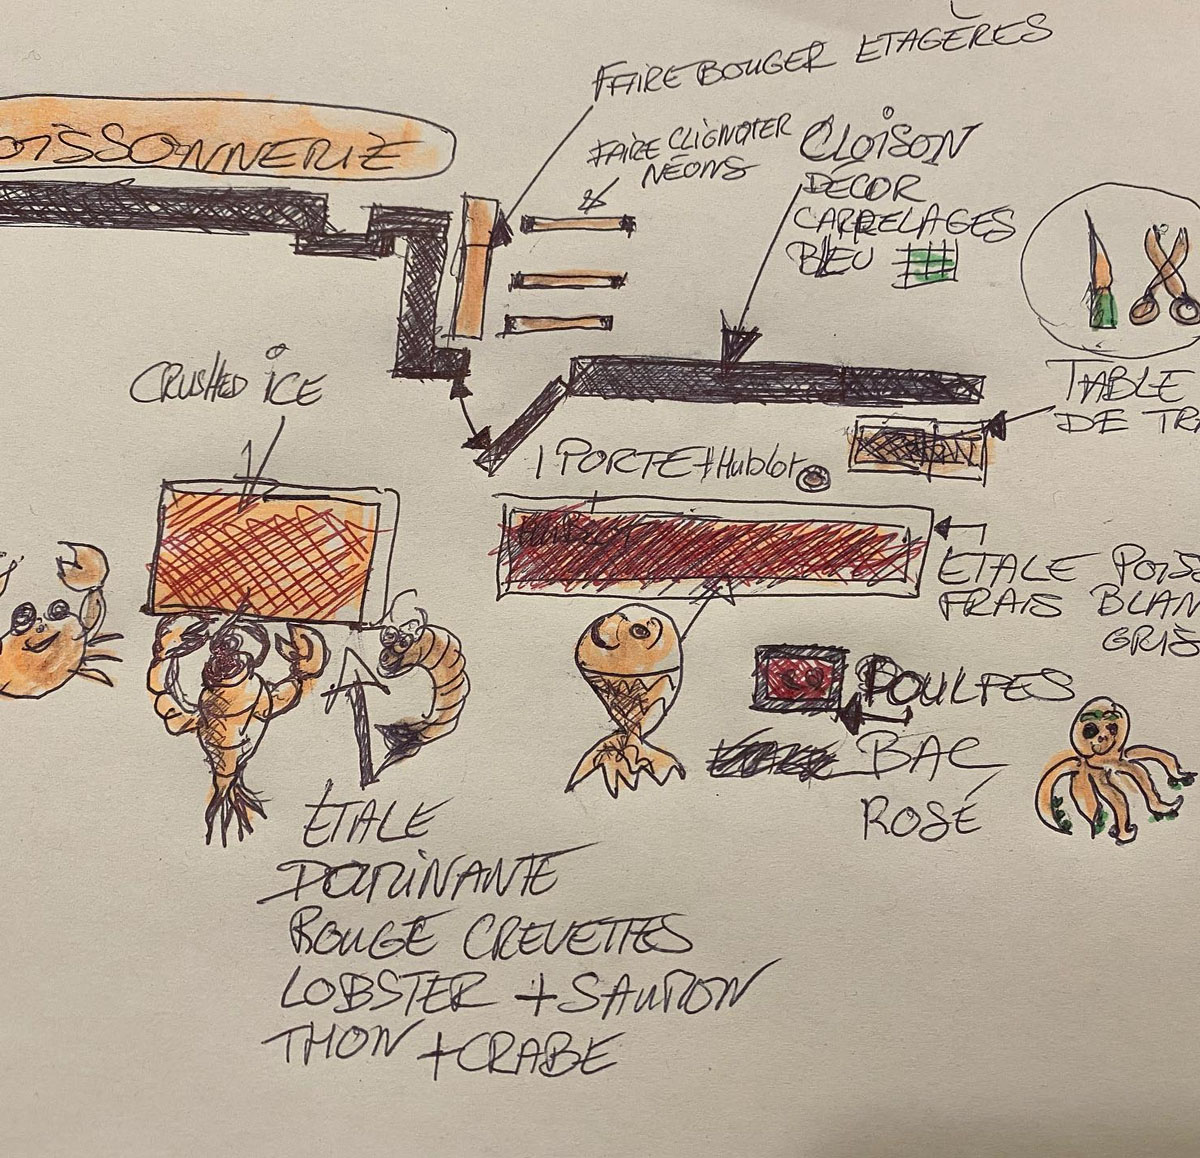 FAIRE BOUGER ETAGÈRES
OISSONNERIE
FAIRE CLIGNOTER
NÉONS
CLOISON
DÉCOR
CARRELAGES
BLEU
CRUSHED ICE
TABLE
DE TRA
1 PORTE + Hublot
ETALE POISS
FRAIS BLAN
GRIS
POULPES
BAC
ROSÉ
ÉTALE
DOMINANTE
ROUGE CREVETTES
LOBSTER + SAUMON
THON + CRABE